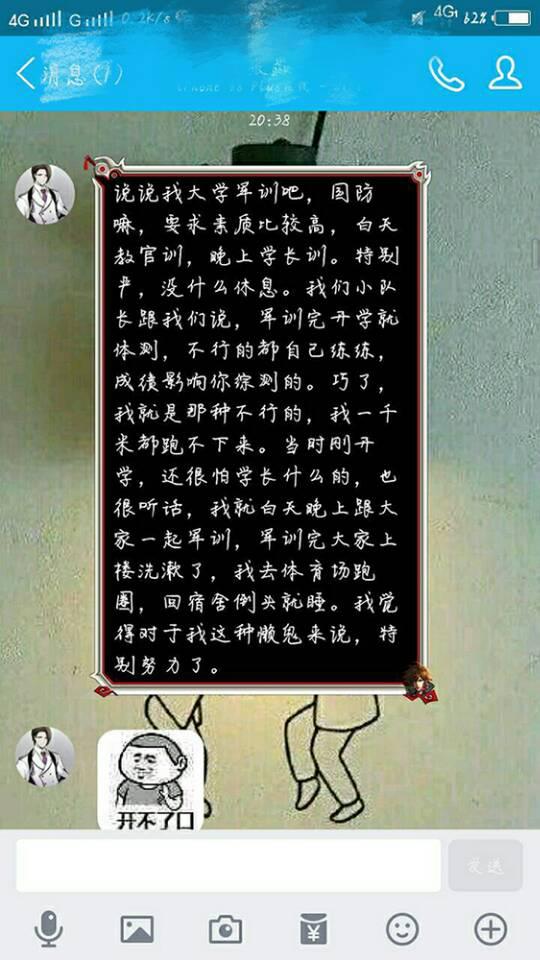 4G G 0.2K/s 4G 62%
消息(1)
20:38
说说我大学军训吧，国防
嘛，要求素质比较高，白天
教官训，晚上学长训。特别
严，没什么休息。我们小队
长跟我们说，军训完开学就
体测，不行的都自己练练，
成绩影响你综测的。巧了，
我就是那种不行的，我一千
米都跑不下来。当时刚开
学，还很怕学长什么的，也
很听话，我就白天晚上跟大
家一起军训，军训完大家上
楼洗漱了，我去体育场跑
圈，回宿舍倒头就睡。我觉
得对于我这种懒鬼来说，特
别努力了。
开不了口
发送